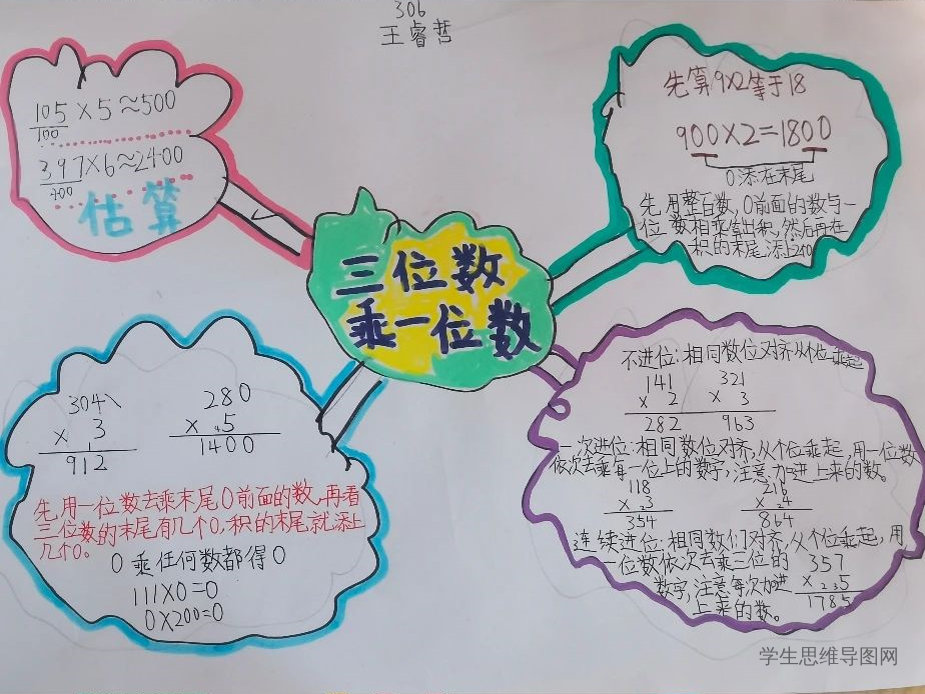 306
王睿哲
105×5≈500
100
397×6≈2400
400
估算
先算9×2等于18
900×2=1800
0添在末尾
先用整百数,0前面的数与一
位数相乘算出积,然后再在
积的末尾添上2个0
三位数
乘一位数
304
× 3
1
912
280
× 5
4
1400
先用一位数去乘末尾0前面的数,再看
三位数的末尾有几个0,积的末尾就添上
几个0。
0乘任何数都得0
111×0=0
0×200=0
不进位:相同数位对齐从个位乘起
141
× 2
282
321
× 3
963
一次进位:相同数位对齐,从个位乘起,用一位数
依次去乘每一位上的数字,注意加进上来的数。
118
× 3
2
354
216
× 4
2
864
连续进位:相同数们对齐,从个位乘起,用
一位数依次去乘三位的
数字,注意每次加进
上来的数。
357
× 5
2 3
1785
学生思维导图网